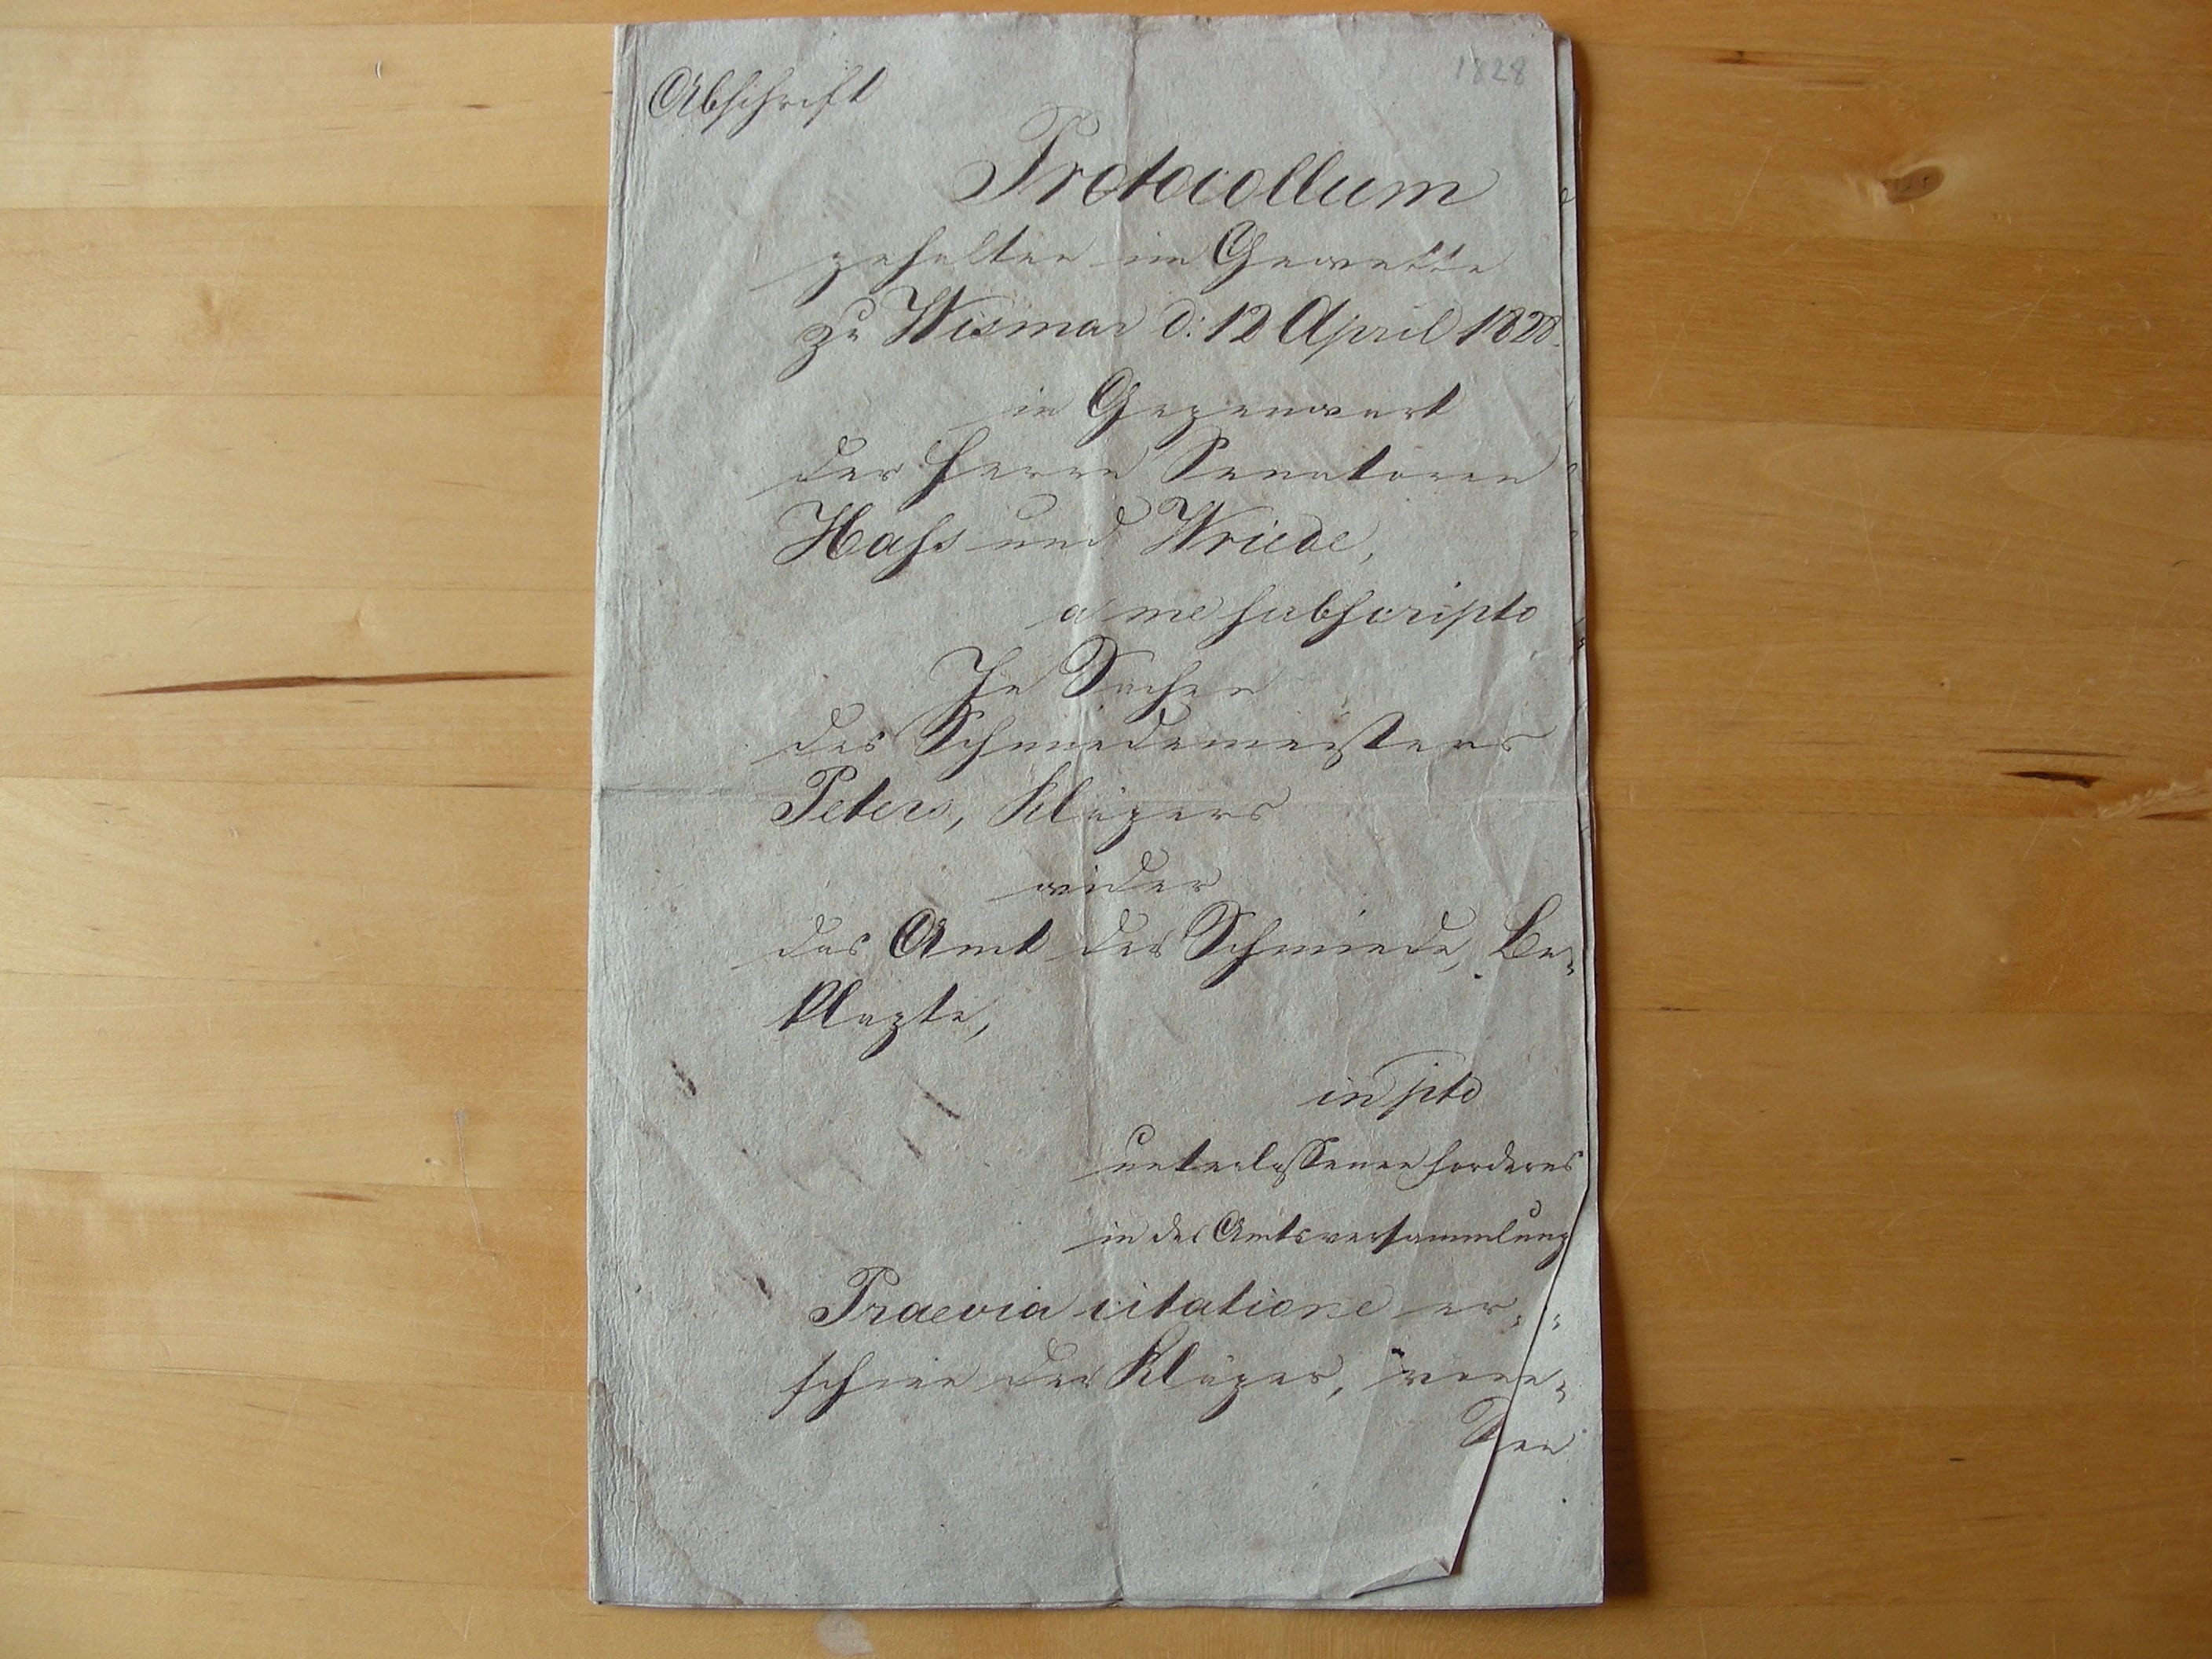 1828
Abschrift
Protocollum
gehalten im Gewette
zu Wismar d: 12 April 1828.
in Gegenwart
der Herrn Senatoren
Hass und Wriede,
a me subscripto
In Sachen
des Schmiedemeisters
Peters, Klägers
wider
das Amt der Schmiede, Be-
klagte,
in pto
unterlassenen forderns
in der Amtsversammlung
Praevia citatione er-
schien der Kläger,